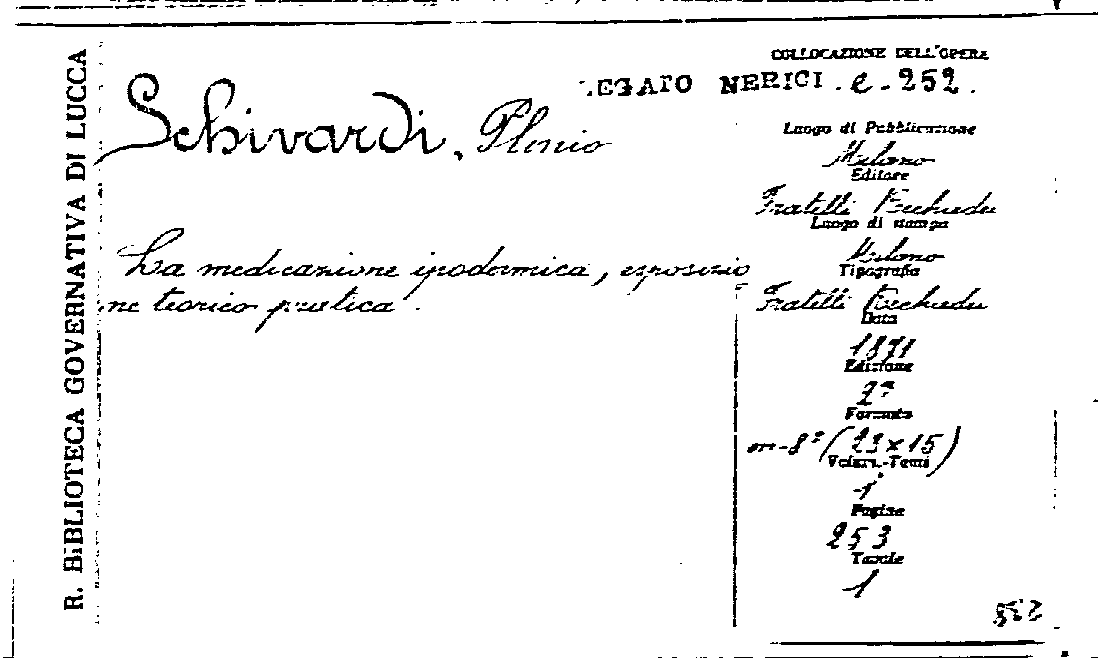 R. BIBLIOTECA GOVERNATIVA DI LUCCA
COLLOCAZIONE DELL'OPERA
LEGATO NERICI. e-252.
Schivardi, Plinio
La medicazione ipodermica, esposizio
ne teorico pratica.
Luogo di Pubblicazione
Milano
Editore
Fratelli Rechiedei
Luogo di stampa
Milano
Tipografia
Fratelli Rechiedei
Data
1871
Edizione
2ª
Formato
in-8° (23x15)
Volumi-Tomi
1
Pagine
253
Tavole
1